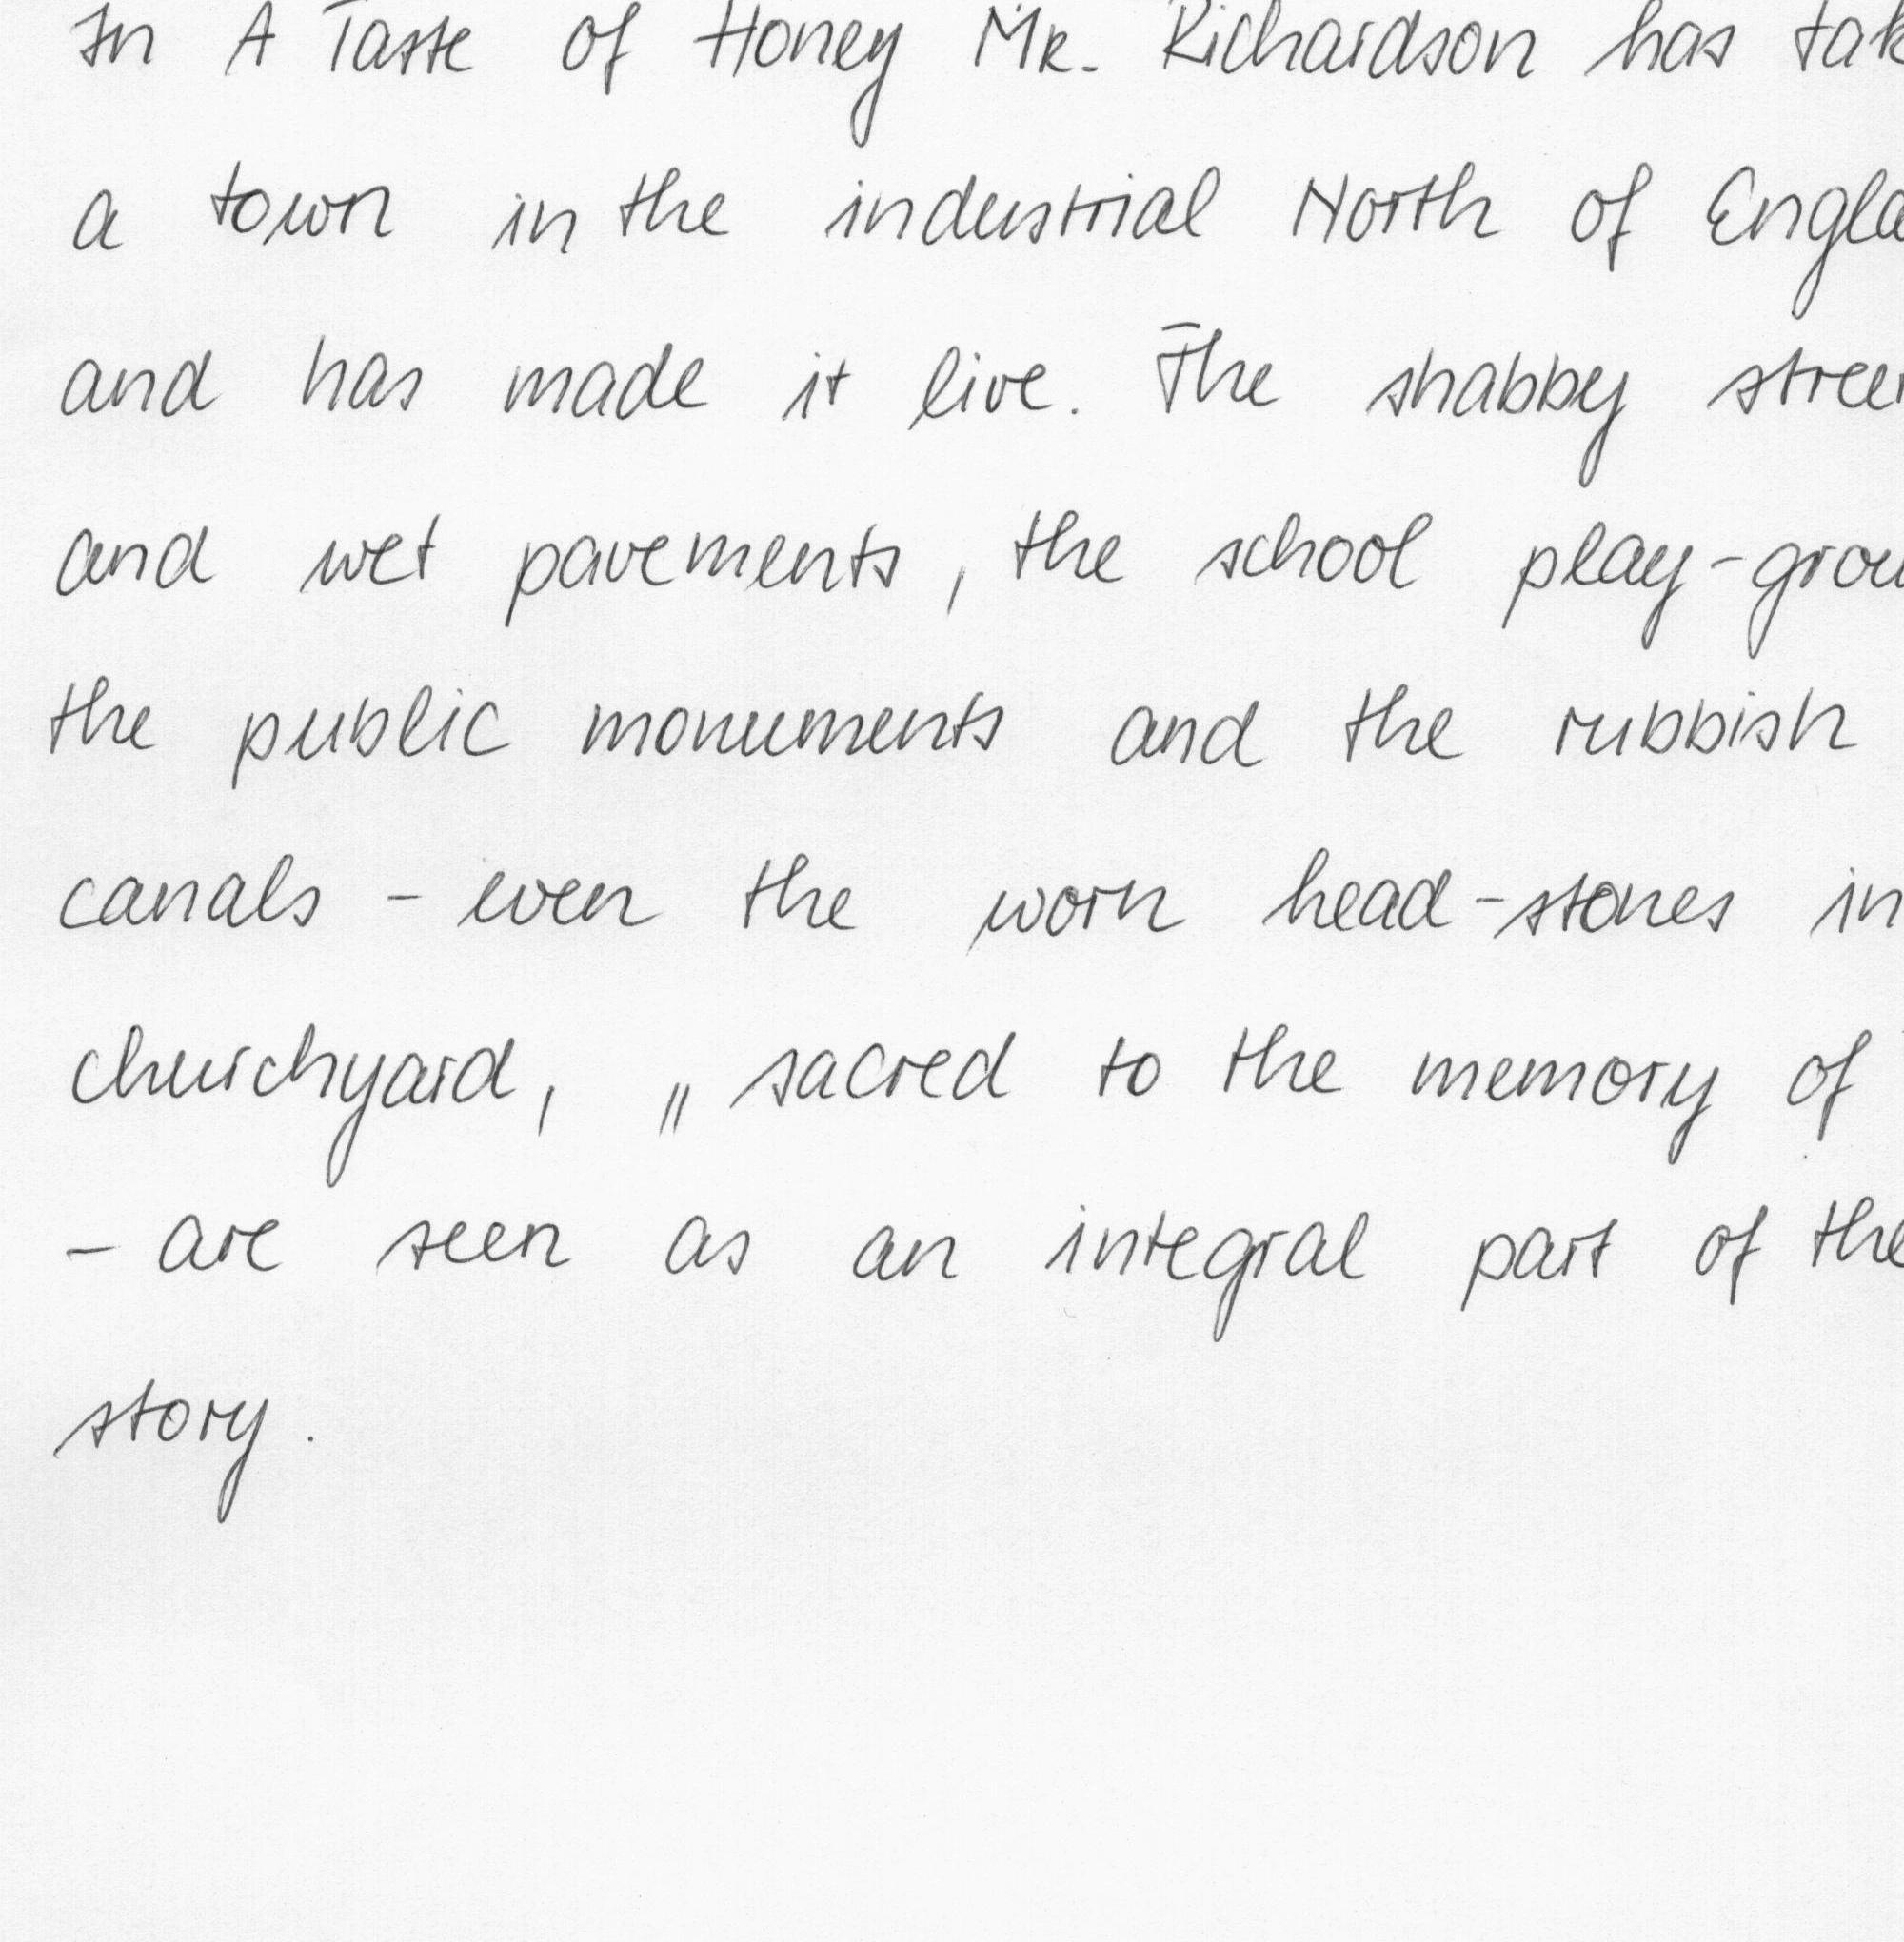 In A Taste of Honey Mr. Richardson has
a town in the industrial North of
and has made it live. The shabby
and wet pavements, the school
the public monuments and the rubbish
canals - even the worn head-stones in
churchyard, „sacred to the memory of
- are seen as an integral part of the
story.